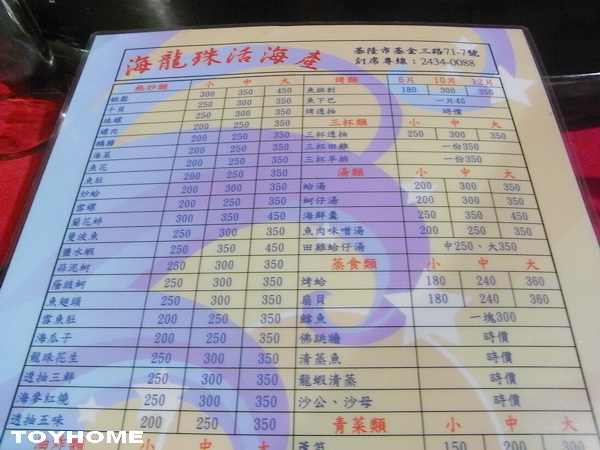 海龍珠活海產
基隆市基金三路71-7號
訂席專線:2434-0088
熱炒類 小 中 大
300 350 450
干貝 250 300 350
珠螺 250 300 350
螺肉 200 250 350
200 250 350
海菜 200 250 350
魚花 200 250 350
魚肚 200 250 350
炒蛤 200 300 350
雪螺 200 250 350
蘭花蚌 300 350 450
曼波魚 200 250 350
鹽水蝦 250 300 350
蒜泥蚵 250 300 350
蔭波蚵 250 300 350
魚翅頭 250 300 350
雪魚肚 200 250 350
海瓜子 200 250 350
龍珠花生 250 300 350
透抽三鮮 250 300 350
海參紅燒 250 300 350
透抽五味 200 250 350
小 中 大
烤類 6月 10月 12月
魚排刺 180 300 350
魚下巴 一片40
烤透抽 時價
三杯類 小 中 大
三杯透抽 250 300 350
三杯田雞 一份350
三杯羊排 一份350
湯類 小 中 大
蛤湯 200 300 350
蚵仔湯 200 300 350
海鮮羹 250 350 450
魚肉味噌湯 200 250 350
田雞蛤仔湯 中250、大350
蒸食類 小 中 大
烤蛤 180 240 360
扇貝 180 240 360
鱈魚 一塊300
佛跳牆 時價
清蒸魚 時價
龍蝦清蒸 時價
沙公、沙母 時價
青菜類 小 中 大
蘆筍 150 200 300
TOYHOME